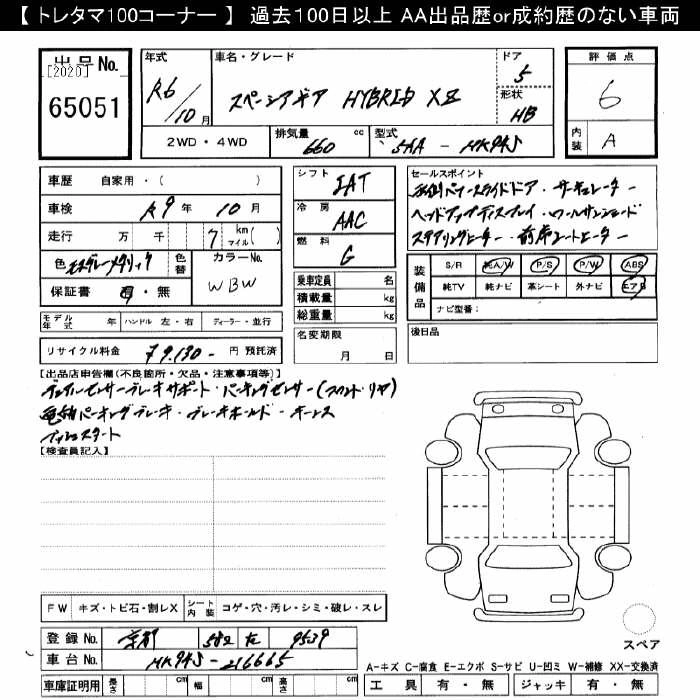 【 トレタマ100コーナー 】 過去100日以上 AA出品歴or成約歴のない車両
出品No.
[2020]
65051
年式
R6/10月
車名・グレード
スペーシアギア HYBRID XZ
ドア
5
形状
HB
評価点
6
内装
A
2WD・4WD
排気量 660 cc
型式 5AA - MK94S
車歴 自家用・( )
車検 R9年 10月
走行 万 千 7 km マイル( )
色
色替
カラーNo.
WBW
保証書 有・無
シフト
IAT
冷房
AAC
燃料
G
乗車定員 名
積載量 kg
総重量 kg
セールスポイント
両側パワースライドドア・サーキュレーター
ヘッドアップディスプレイ・ロールサンシェード
ステアリングヒーター・前席シートヒーター
装備品
S/R 純A/W P/S P/W ABS
純TV 純ナビ 革シート 外ナビ エアB
ナビ型番:
モデル年式 年 ハンドル 左・右 ディーラー・並行
名変期限
月 日
後日品
リサイクル料金 ¥9,130- 円 預託済
【出品店申告欄(不良箇所・欠品・注意事項等)】
デュアルセンサーブレーキサポート・パーキングセンサー(フロント・リヤ)
電動パーキングブレーキ・ブレーキホールド・キーレス
プッシュスタート
【検査員記入】
FW キズ・トビ石・割レX シート内装 コゲ・穴・汚レ・シミ・破レ・スレ
登録No. 京都 582 を 9539
車台No. MK94S-216665
車庫証明用 長さ cm 幅 cm 高さ cm
スペア
A-キズ C-腐食 E-エクボ S-サビ U-凹ミ W-補修 XX-交換済
工具 有・無 ジャッキ 有・無